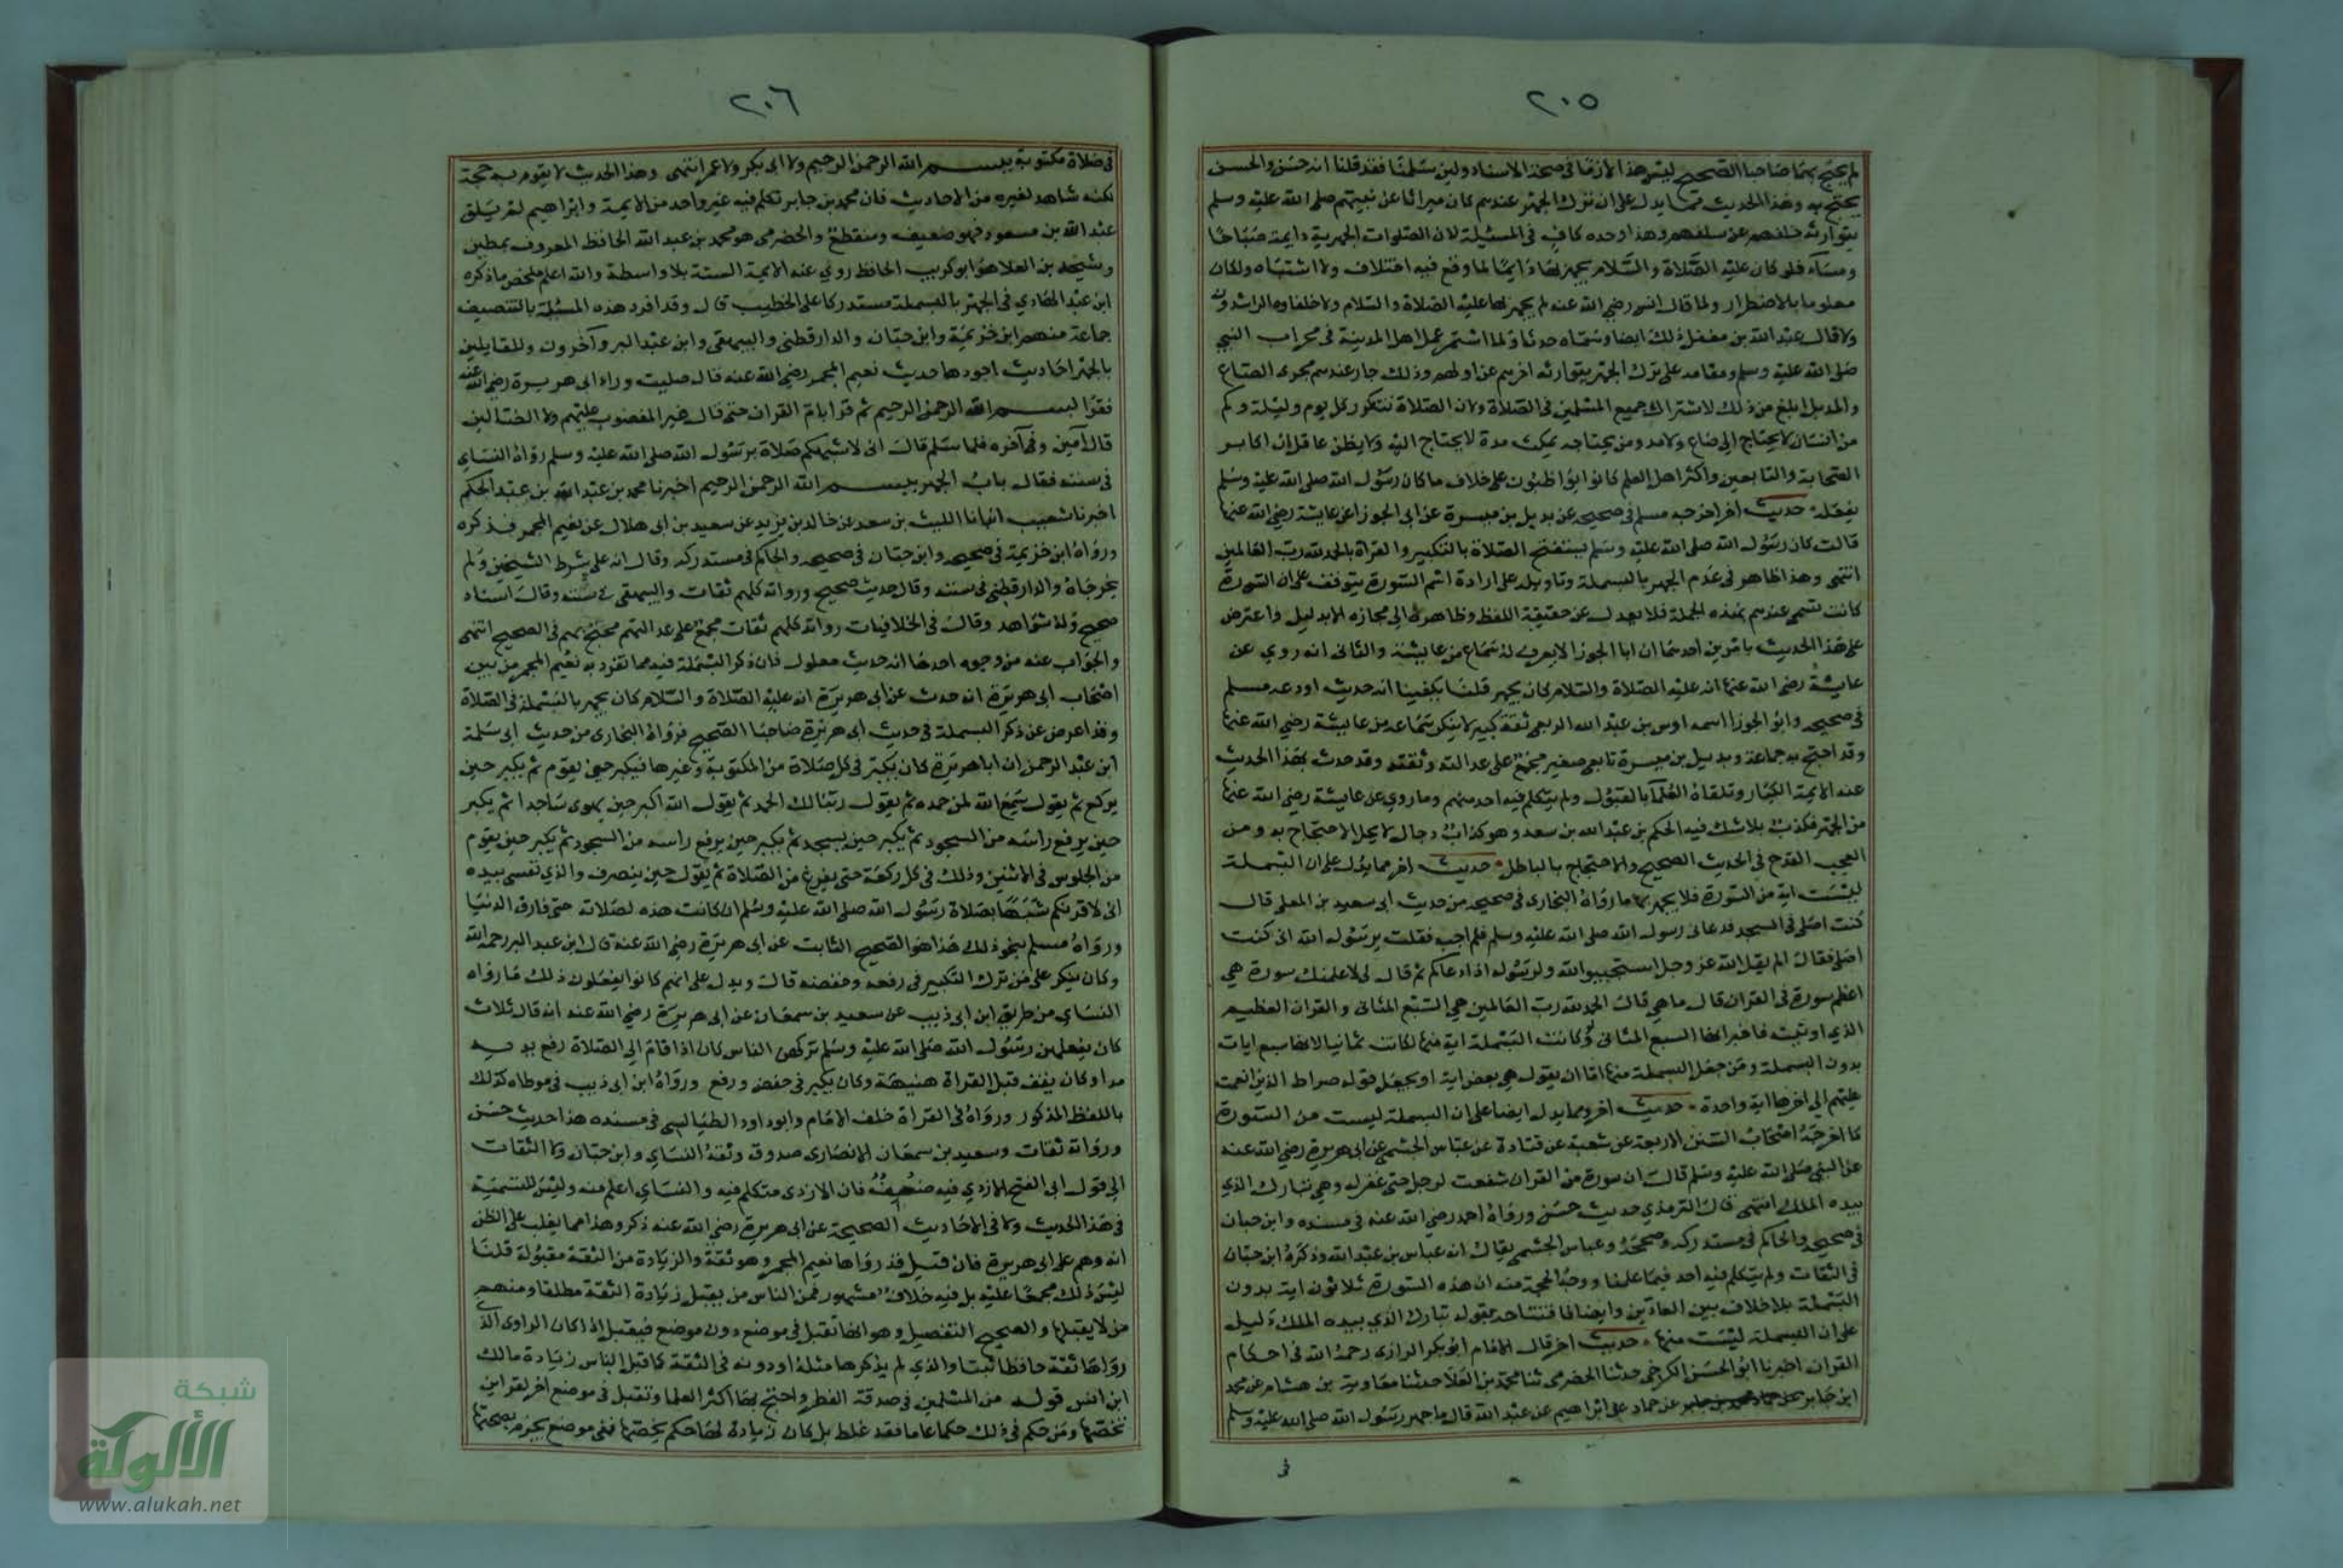 ٢٠٥
لم يحتج بهما صاحبا الصحيح ليس هذا لازما في صحة الاسناد ولين سلمنا فقد قلنا انه حسن والحسن
يحتج به وهذا الحديث مما يدل على ان ترك الجهر عندهم كان ميراثا عن نبيهم صلى الله عليه وسلم
يتوارثه خلفهم عن سلفهم وهذا وحده كاف في المسئلة لان الصلوات الجهرية دايمة صباحا
ومساء فلو كان عليه الصلاة والسلام يجهر بها دايما لما وقع فيه اختلاف ولا اشتباه ولكان
معلوما بالاضطرار ولما قال انس رضي الله عنه لم يجهر بها عليه الصلاة والسلام ولا خلفاوه الراشدون
ولا قال عبد الله بن مغفل ذلك ايضا وسماه حدثا ولما استمر عمل اهل المدينة في محراب النبي
صلى الله عليه وسلم ومقامه على ترك الجهر يتوارثه اخرهم عن اولهم وذلك جار عندهم مجرى الصاع
والمد بل ابلغ من ذلك لاشتراك جميع المسلمين في الصلاة ولان الصلاة تتكرر كل يوم وليلة وكم
من انسان لا يحتاج الى صاع ولا مد ومن يحتاجه يمكث مدة لا يحتاج اليه ولا يظن عاقل ان اكابر
الصحابة والتابعين واكثر اهل العلم كانوا يواظبون على خلاف ما كان رسول الله صلى الله عليه وسلم
يفعله حديث اخر اخرجه مسلم في صحيحه عن بديل بن ميسرة عن ابى الجوزا عن عايشة رضي الله عنها
قالت كان رسول الله صلى الله عليه وسلم يستفتح الصلاة بالتكبير والقراة بالحمد لله رب العالمين
انتهى وهذا ظاهر في عدم الجهر بالبسملة وتاويله على ارادة اسم السورة يتوقف على ان السورة
كانت تسمى عندهم بهذه الجملة فلا يعدل عن حقيقة اللفظ وظاهره الى مجازه الا بدليل واعترض
على هذا الحديث بامرين احدهما ان ابا الجوزا لا يعرف له سماع من عايشة والثانى انه روي عن
عايشة رضي الله عنها انه عليه الصلاة والسلام كان يجهر قلنا يكفينا انه حديث اودعه مسلم
في صحيحه وابو الجوزا اسمه اوس بن عبد الله الربعى ثقة كبير لا ينكر سماعه من عايشة رضي الله عنها
وقد احتج به جماعة وبديل بن ميسرة تابعى صغير مجمع على عدالته وثقته وقد حدث بهذا الحديث
عنه الايمة الكبار وتلقاه العلما بالقبول ولم يتكلم فيه احد منهم وما روي عن عايشة رضي الله عنها
من الجهر فكذب بلا شك فيه الحكم بن عبد الله بن سعد وهو كذاب دجال لا يحل الاحتجاج به ومن
العجب القدح في الحديث الصحيح والاحتجاج بالباطل حديث اخر مما يدل على ان البسملة
ليست اية من السورة فلا يجهر بها ما رواه البخارى في صحيحه من حديث ابى سعيد بن المعلى قال
كنت اصلى في المسجد فدعانى رسول الله صلى الله عليه وسلم فلم اجبه فقلت يرسول الله انى كنت
اصلى فقال الم يقل الله عز وجل استجيبوا لله ولرسوله اذا دعاكم ثم قال لى لاعلمنك سورة هي
اعظم سورة في القران قال ما هي قال الحمد لله رب العالمين هي السبع المثانى والقران العظيم
الذي اوتيت فاخبر انها السبع المثانى ولو كانت البسملة اية منها لكانت ثمانيا لانها سبع ايات
بدون البسملة ومن جعل البسملة منها اما ان يقول هي بعض اية او يجعل قوله صراط الذين انعمت
عليهم الى اخرها اية واحدة حديث اخر ومما يدل ايضا على ان البسملة ليست من السورة
ما اخرجه اصحاب السنن الاربعة عن شعبة عن قتادة عن عباس الجشمى عن ابى هريرة رضي الله عنه
عن النبي صلى الله عليه وسلم قال ان سورة من القران شفعت لرجل حتى غفر له وهي تبارك الذي
بيده الملك انتهى قال الترمذي حديث حسن ورواه احمد رضي الله عنه في مسنده وابن حبان
في صحيحه والحاكم في مستدركه وصححه وعباس الجشمى يقال انه عباس بن عبد الله وذكره ابن حبان
في الثقات ولم يتكلم فيه احد فيما علمنا ووجه الحجة منه ان هذه السورة ثلاثون اية بدون
البسملة بلا خلاف بين العادين وايضا فافتتاحه بقوله تبارك الذي بيده الملك دليل
على ان البسملة ليست منها حديث اخر قال الامام ابو بكر الرازى رحمه الله في احكام
القران اخبرنا ابو الحسن الكرخى حدثنا الحضرمى ثنا محمد بن العلا حدثنا معاوية بن هشام عن محمد
ابن جابر عن حماد عن ابراهيم عن عبد الله قال ما جهر رسول الله صلى الله عليه وسلم
في
٢٠٦
في صلاة مكتوبة ببسم الله الرحمن الرحيم ولا ابى بكر ولا عمر انتهى وهذا الحديث لا يقوم به حجة
لكنه شاهد لغيره من الاحاديث فان محمد بن جابر تكلم فيه غير واحد من الايمة وابراهيم لم يلق
عبد الله بن مسعود فهو ضعيف ومنقطع والحضرمى هو محمد بن عبد الله الحافظ المعروف بمطين
وشيخه بن العلا هو ابو كريب الحافظ روى عنه الايمة الستة بلا واسطة والله اعلم ملخص ما ذكره
ابن عبد الهادي في الجهر بالبسملة مستدركا على الخطيب قال وقد افرد هذه المسئلة بالتصنيف
جماعة منهم ابن خزيمة وابن حبان والدارقطنى والبيهقى وابن عبد البر وآخرون وللقايلين
بالجهر احاديث اجودها حديث نعيم المجمر رضي الله عنه قال صليت وراء ابى هريرة رضي الله عنه
فقرا بسم الله الرحمن الرحيم ثم قرا بام القران حتى قال غير المغضوب عليهم ولا الضالين
قال آمين وفى آخره فلما سلم قال انى لاشبهكم صلاة برسول الله صلى الله عليه وسلم رواه النساي
في سننه فقال باب الجهر ببسم الله الرحمن الرحيم اخبرنا محمد بن عبد الله بن عبد الحكم
اخبرنا شعيب انبانا الليث بن سعد عن خالد بن يزيد عن سعيد بن ابى هلال عن نعيم المجمر فذكره
ورواه ابن خزيمة في صحيحه وابن حبان في صحيحه والحاكم في مستدركه وقال انه على شرط الشيخين ولم
يخرجاه والدارقطنى في سننه وقال حديث صحيح ورواته كلهم ثقات والبيهقى في سننه وقال اسناده
صحيح وله شواهد وقال في الخلافيات رواته كلهم ثقات مجمع على عدالتهم محتج بهم في الصحيح انتهى
والجواب عنه من وجوه احدها انه حديث معلول فان ذكر البسملة فيه مما تفرد به نعيم المجمر من بين
اصحاب ابى هريرة انه حدث عن ابى هريرة انه عليه الصلاة والسلام كان يجهر بالبسملة في الصلاة
وقد اعرض عن ذكر البسملة في حديث ابى هريرة صاحبا الصحيح فرواه البخارى من حديث ابى سلمة
ابن عبد الرحمن ان ابا هريرة كان يكبر في كل صلاة من المكتوبة وغيرها فيكبر حين يقوم ثم يكبر حين
يركع ثم يقول سمع الله لمن حمده ثم يقول ربنا لك الحمد ثم يقول الله اكبر حين يهوى ساجدا ثم يكبر
حين يرفع راسه من السجود ثم يكبر حين يسجد ثم يكبر حين يرفع راسه من السجود ثم يكبر حين يقوم
من الجلوس في الاثنين وذلك في كل ركعة حتى يفرغ من الصلاة ثم يقول حين ينصرف والذي نفسى بيده
انى لاقربكم شبها بصلاة رسول الله صلى الله عليه وسلم ان كانت هذه لصلاته حتى فارق الدنيا
ورواه مسلم بنحو ذلك هذا هو الصحيح الثابت عن ابى هريرة رضي الله عنه قال ابن عبد البر رحمه الله
وكان ينكر على من ترك التكبير في رفعه وخفضه قال ويدل على انهم كانوا يفعلون ذلك ما رواه
النساي من طريق ابن ابى ذيب عن سعيد بن سمعان عن ابى هريرة رضي الله عنه انه قال ثلاث
كان يفعلهن رسول الله صلى الله عليه وسلم تركهن الناس كان اذا قام الى الصلاة رفع يديه
مدا وكان يقف قبل القراة هنيهة وكان يكبر في خفض ورفع ورواه ابن ابى ذيب في موطاه كذلك
باللفظ المذكور ورواه في القراة خلف الامام وابو داود الطيالسى في مسنده هذا حديث حسن
ورواته ثقات وسعيد بن سمعان الانصارى صدوق وثقه النساي وابن حبان ولا التفات
الى قول ابى الفتح الازدي فيه ضعيف فان الازدى متكلم فيه والنساي اعلم منه وليس للتسمية
في هذا الحديث ولا في الاحاديث الصحيحة عن ابى هريرة رضي الله عنه ذكر وهذا مما يغلب على الظن
انه وهم على ابى هريرة فان قيل قد رواها نعيم المجمر وهو ثقة والزيادة من الثقة مقبولة قلنا
ليس ذلك مجمعا عليه بل فيه خلاف مشهور فمن الناس من يقبل زيادة الثقة مطلقا ومنهم
من لا يقبلها والصحيح التفصيل وهو انها تقبل في موضع دون موضع فيقبل اذا كان الراوى الذي
رواها ثقة حافظا ثبتا والذي لم يذكرها مثله او دونه في الثقة كما قبل الناس زيادة مالك
ابن انس قوله من المسلمين في صدقة الفطر واحتج بها اكثر العلما وتقبل في موضع اخر لقراين
تخصها ومن حكم في ذلك حكما عاما فقد غلط بل كل زيادة لها حكم يخصها ففى موضع يجزم بصحتها
شبكة
الألوكة
www.alukah.net